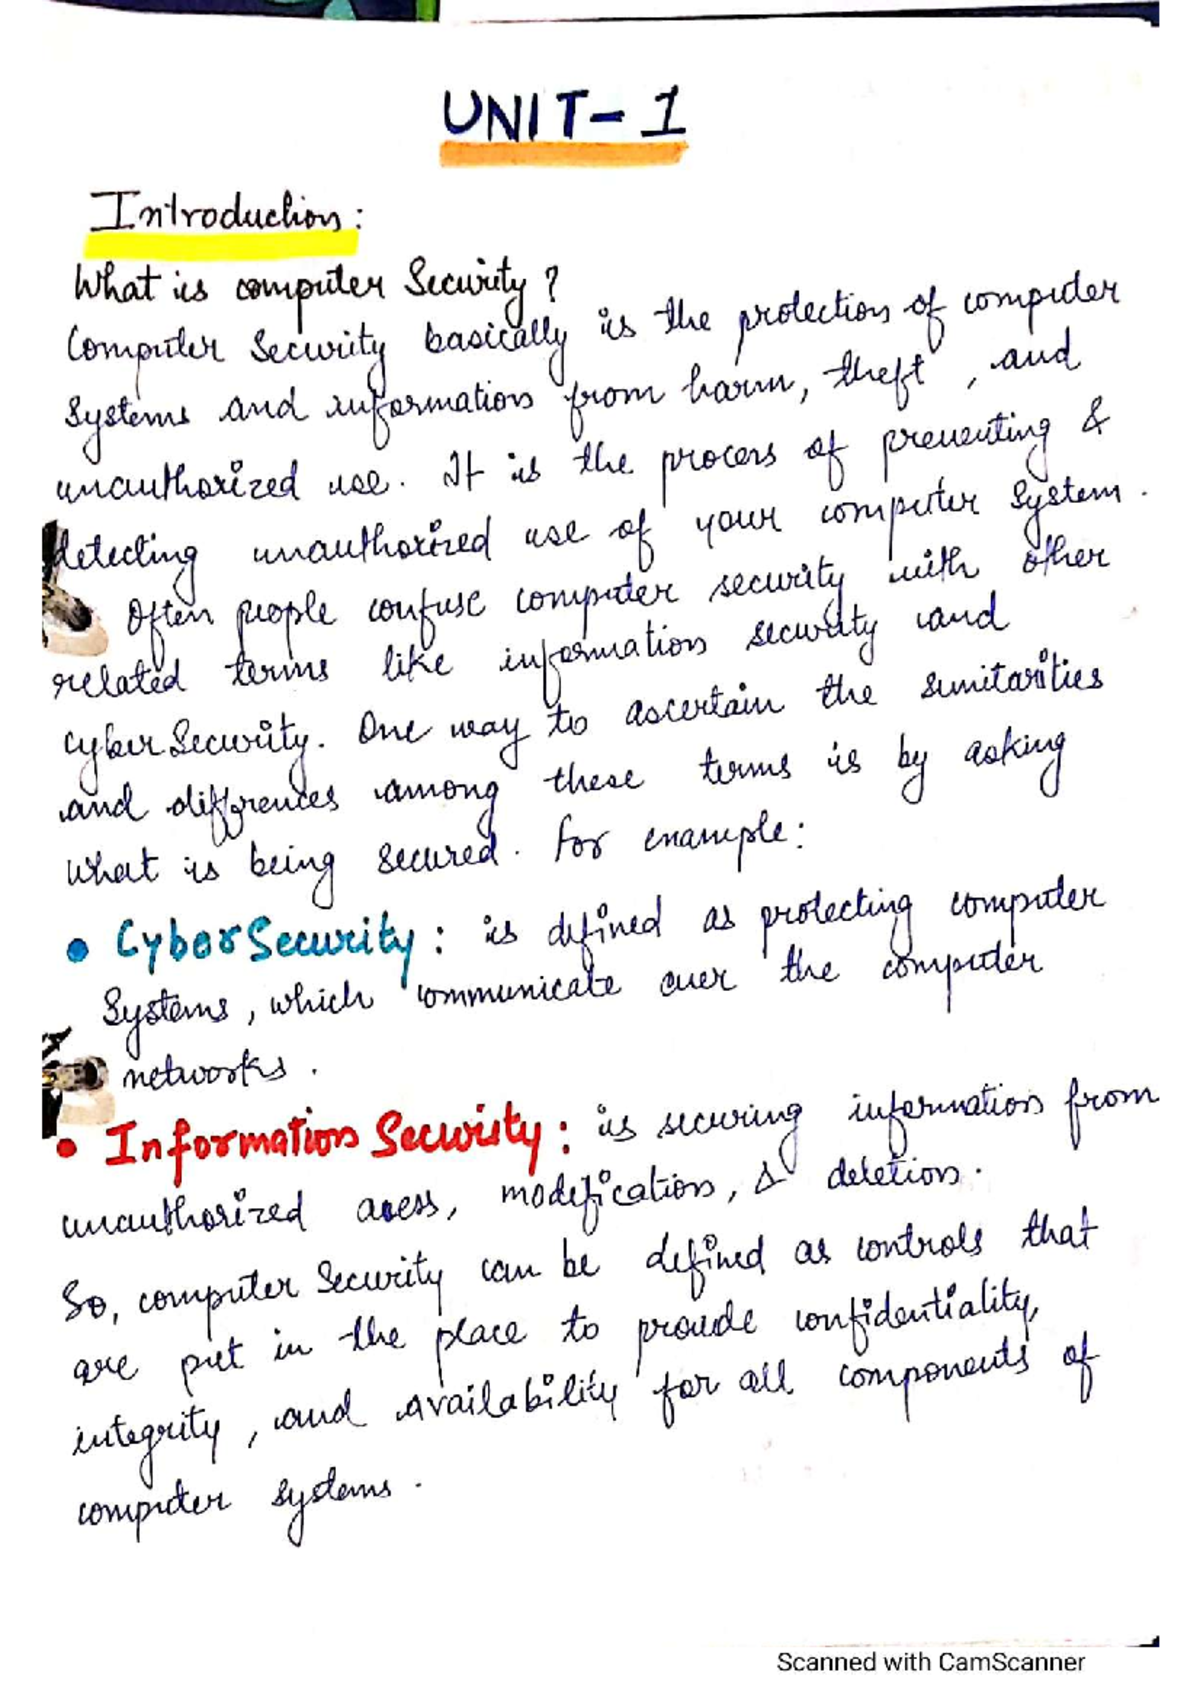 UNIT-1
Introduction:
What is computer Security?
Computer Security basically is the protection of computer
systems and information from harm, theft, and
unauthorized use. It is the process of preventing &
detecting unauthorized use of your computer system.
Often people confuse computer security with other
related terms like information security and
cyberSecurity. One way to ascertain the similarities
and differences among these terms is by asking
what is being secured. For example:
• CyberSecurity: is defined as protecting computer
Systems, which communicate over the computer
networks.
• Information Security: is securing information from
unauthorized acess, modification, & deletion.
So, computer Security can be defined as controls that
are put in the place to provide confidentiality,
integrity, and availability for all components of
computer systems.
Scanned with CamScanner